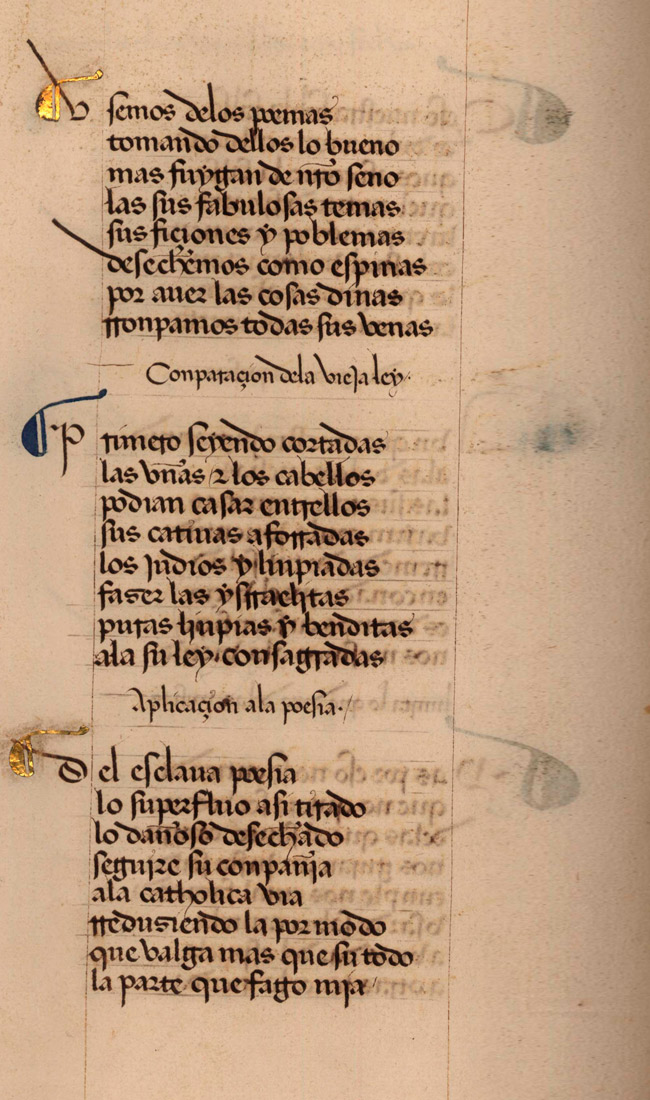 Vsemos delos poemas
tomando dellos lo bueno
mas fuygan de nr̃o seno
las sus fabulosas temas
sus ficiones y poblemas
desechemos como espinas
por auer las cosas dinas
rronpamos todas sus venas
Conparaçion dela vieja ley.
Primero seyendo cortadas
las vñas & los cabellos
podian casar entrellos
sus catiuas aforradas
los judios y linpiadas
faser las ysrraelitas
puras linpias y benditas
ala su ley consagradas
Aplicaçion ala poesia.
Del esclaua poesia
lo superfluo asi tirado
lo dañoso desechado
seguire su conpañja
ala catholica via
rredusiendo la por modo
que valga mas que su todo
la parte que fago mja